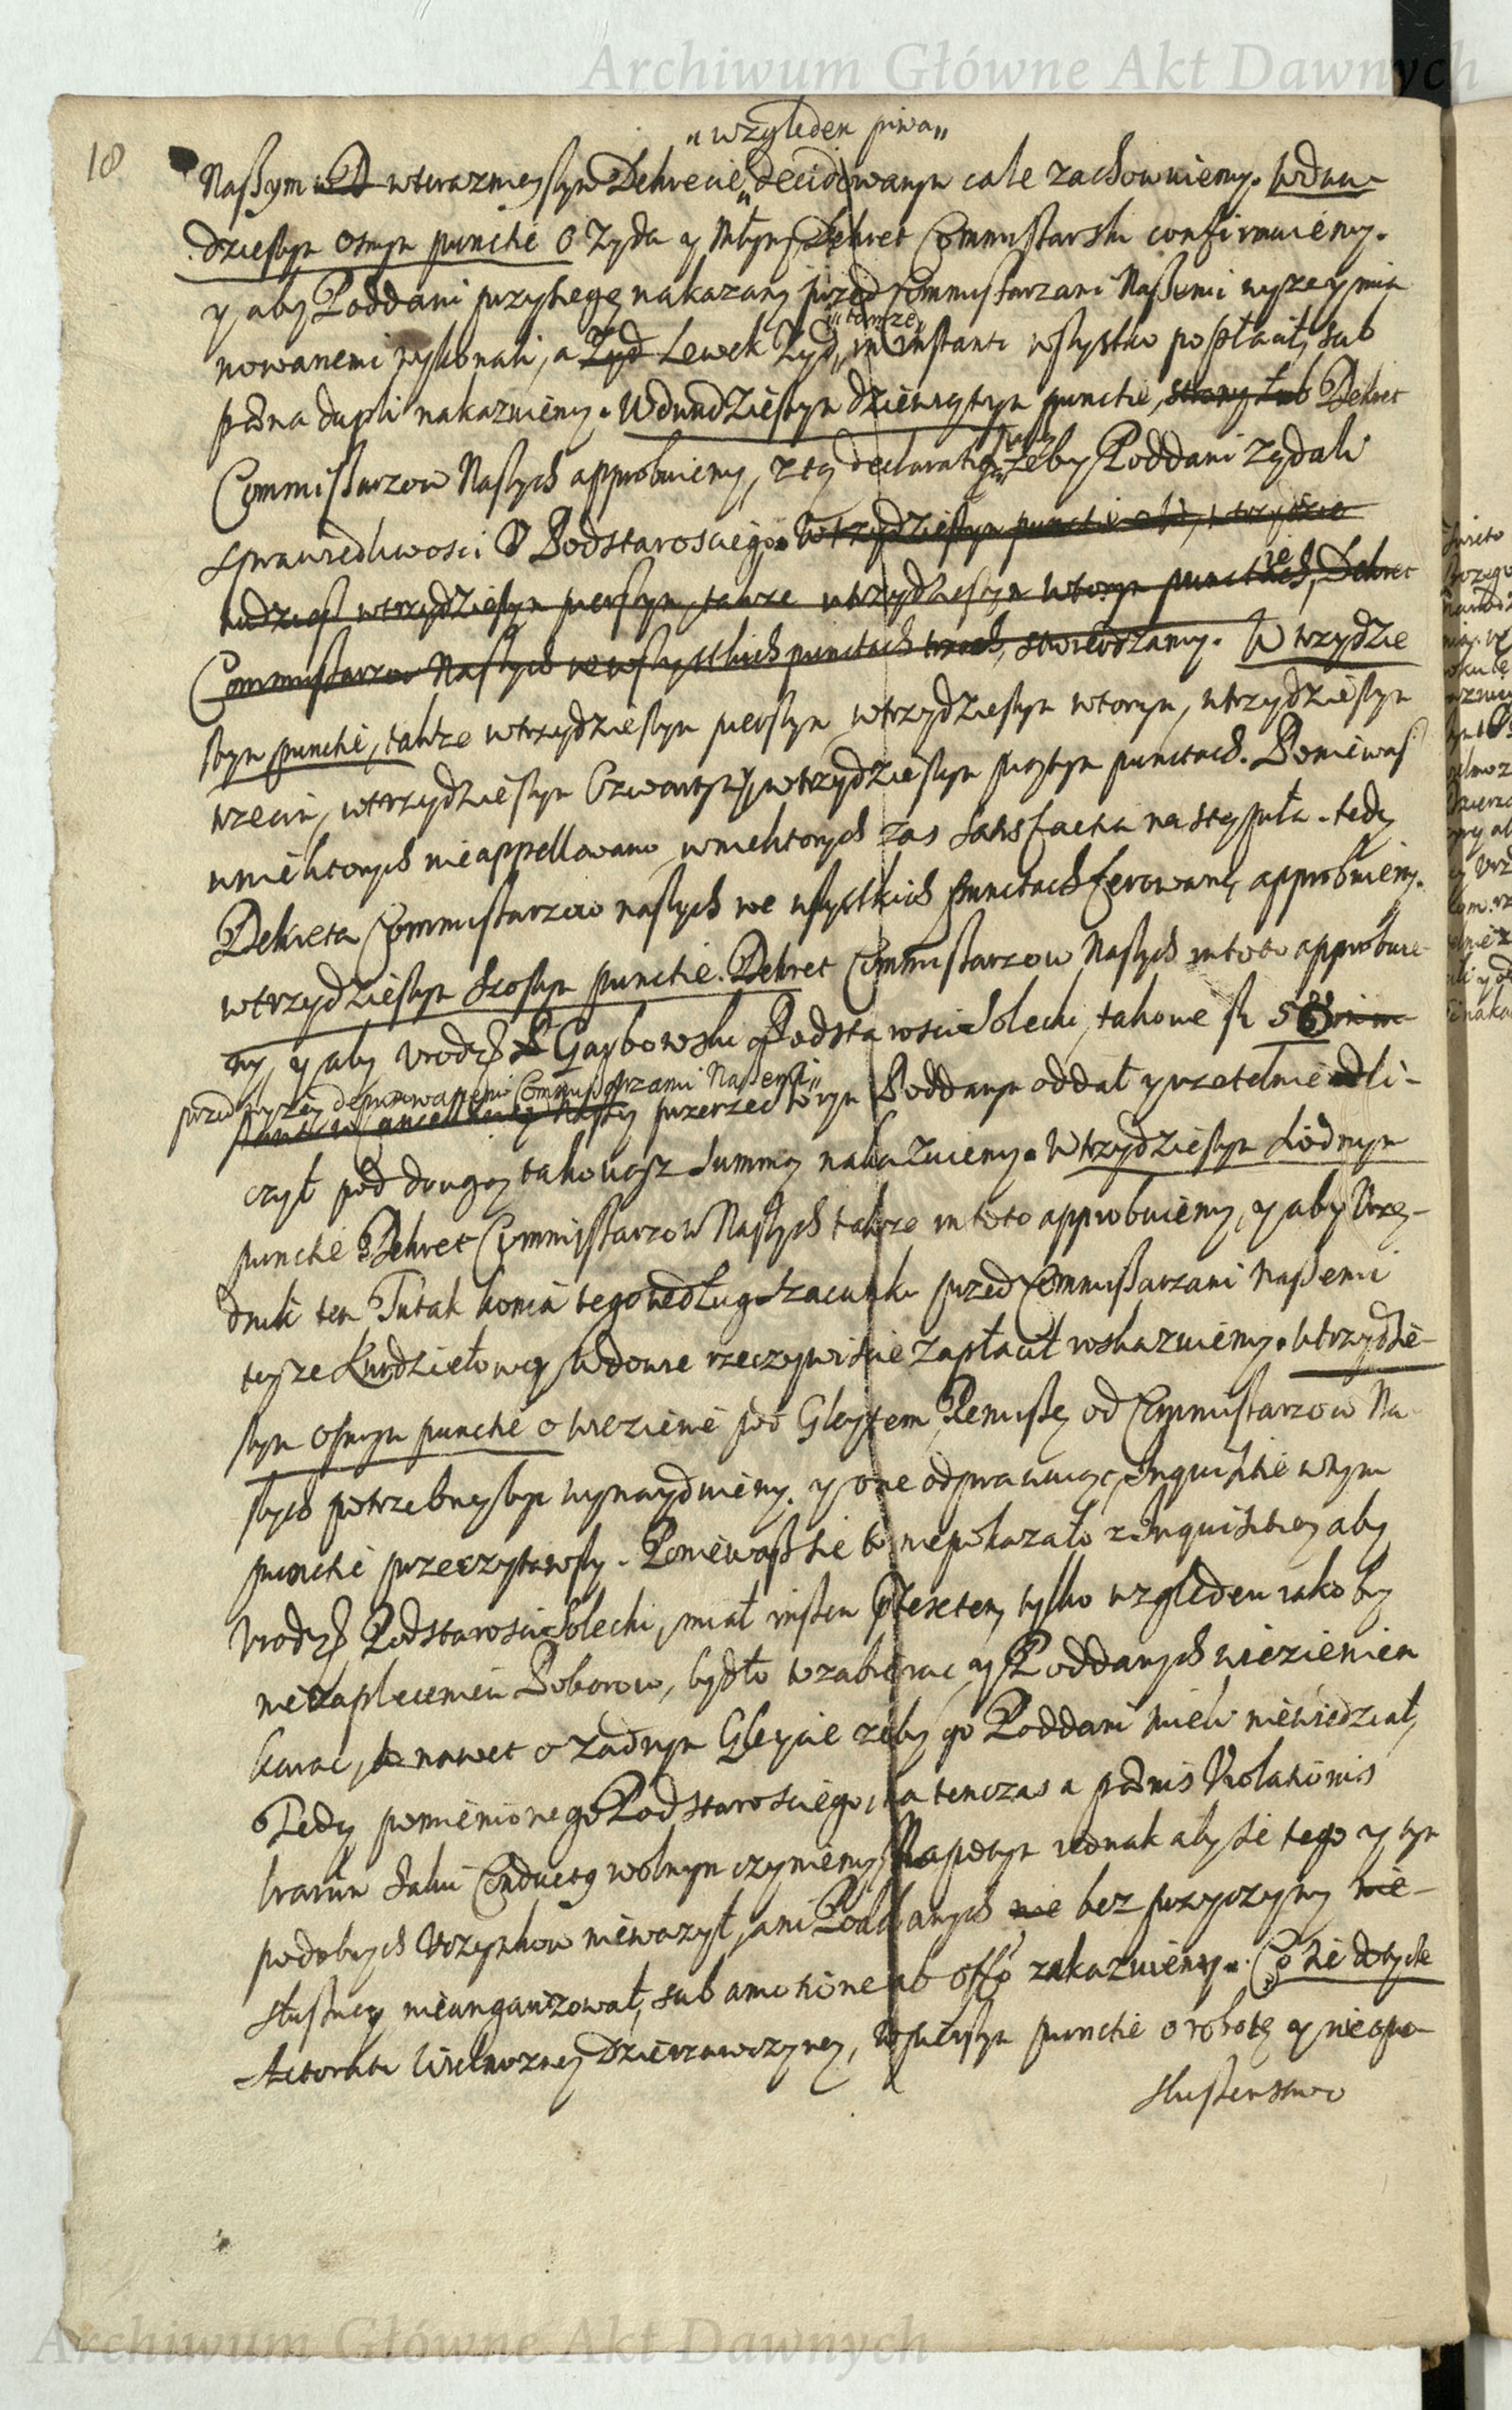 Archiwum Główne Akt Dawnych
18
„względem piwa„
Naszym w D wteraznieyszym Dekrecie decidowanym cale zachowuiemy. Wdwu-
dziestym osmym punkcie O Zyda y Młyny Dekret Commissarski confirmuiemy.
y aby Poddani przysięgę nakazaną przed Commissarzami Naszemi wyzey mia
nowanemi wykonali, a Zyd Lewek Zyd, „tamze„ in instanti wszystko popłacił, sub
poena dupli nakazuiemy. Wdwudziestym dziewiątym punctie, strony Lub Dekret
Commissarzow Naszych approbuiemy, z tą declaratią zeby Poddani ządali
sprawiedliwosci V Podstarosciego. Wtrzydziestym punctie
tudziesz wtrzydziestym pierszym, takze wtrzydziestym wtorym punctach, Dekret
Commissarzow Naszych we wszystkich punctach trzech, stwierdzamy. W trzydzie
stym punctie, takze wtrzydziestym pierszym wtrzydziestym wtorym, wtrzydziestym
trzecim, wtrzydziestym Czwartym, wtrzydziestym piątym punctach. Poniewasz
wniektorych nieappellowano, wniektorych zas satisfactia nastąpiła. tedy
Dekreta Commissarzow naszych we wszystkich punctach ferowane approbuiemy.
wtrzydziestym szostym punctie. Dekret Commissarzow Naszych in toto approbuie-
my, y aby Vrodz. Gaybowski Podstarosci Solecki, takowe fl. 56
przed wyzey Commissarzami Naszemi„
przerzeczonym Poddanym oddał y rzetelnie dli-
czył pod drugą takowąsz summą nakazuiemy. Wtrzydziestym siodmym
punctie Dekret Commissarzow Naszych takze in toto approbuiemy, y aby Vrzę-
dnik ten Tutak konia tego według szacunku przed Commissarzami Naszemi
teyze Kurdziełowey Wdowie rzeczywiscie zapłacił roskazuiemy. Wtrzydzie-
stym osmym punctie o więzienie pod Gleytem, Remissę od Commissarzow Na
szych potrzebnyszą wynayduiemy. y one odprawuiąc, Inquisitie wtym
punctie przeczytawszy. Poniewasz sie to niepokazało z Inquisitiey aby
Vrodz. Podstarosci Solecki, miał inszem pretextem, tylko względem iakoby
niezapłacenia Poborow, bydło zabierac, y Poddanych więzieniem
karac, nawet o zadnym Gleycie zeby go Poddani mieli niewiedział,
Tedy pomienionego Podstarosciego, na tenczas a paenis Violationis
trarum Salvi Conductus wolnym czyniemy. Napotym iednak aby sie tego y tym
podobnych Vczynkow niewazył, ani Poddanych nie bez przyczyny nie-
słuszney nieangarizował, sub amotione ab offo zakazuiemy. Co sie dotycze
Actoratu Wielmozney Dzierzawczyney, Wpierszym punctie o robotę y niepo-
słuszenstwo
Archiwum Główne Akt Dawnych